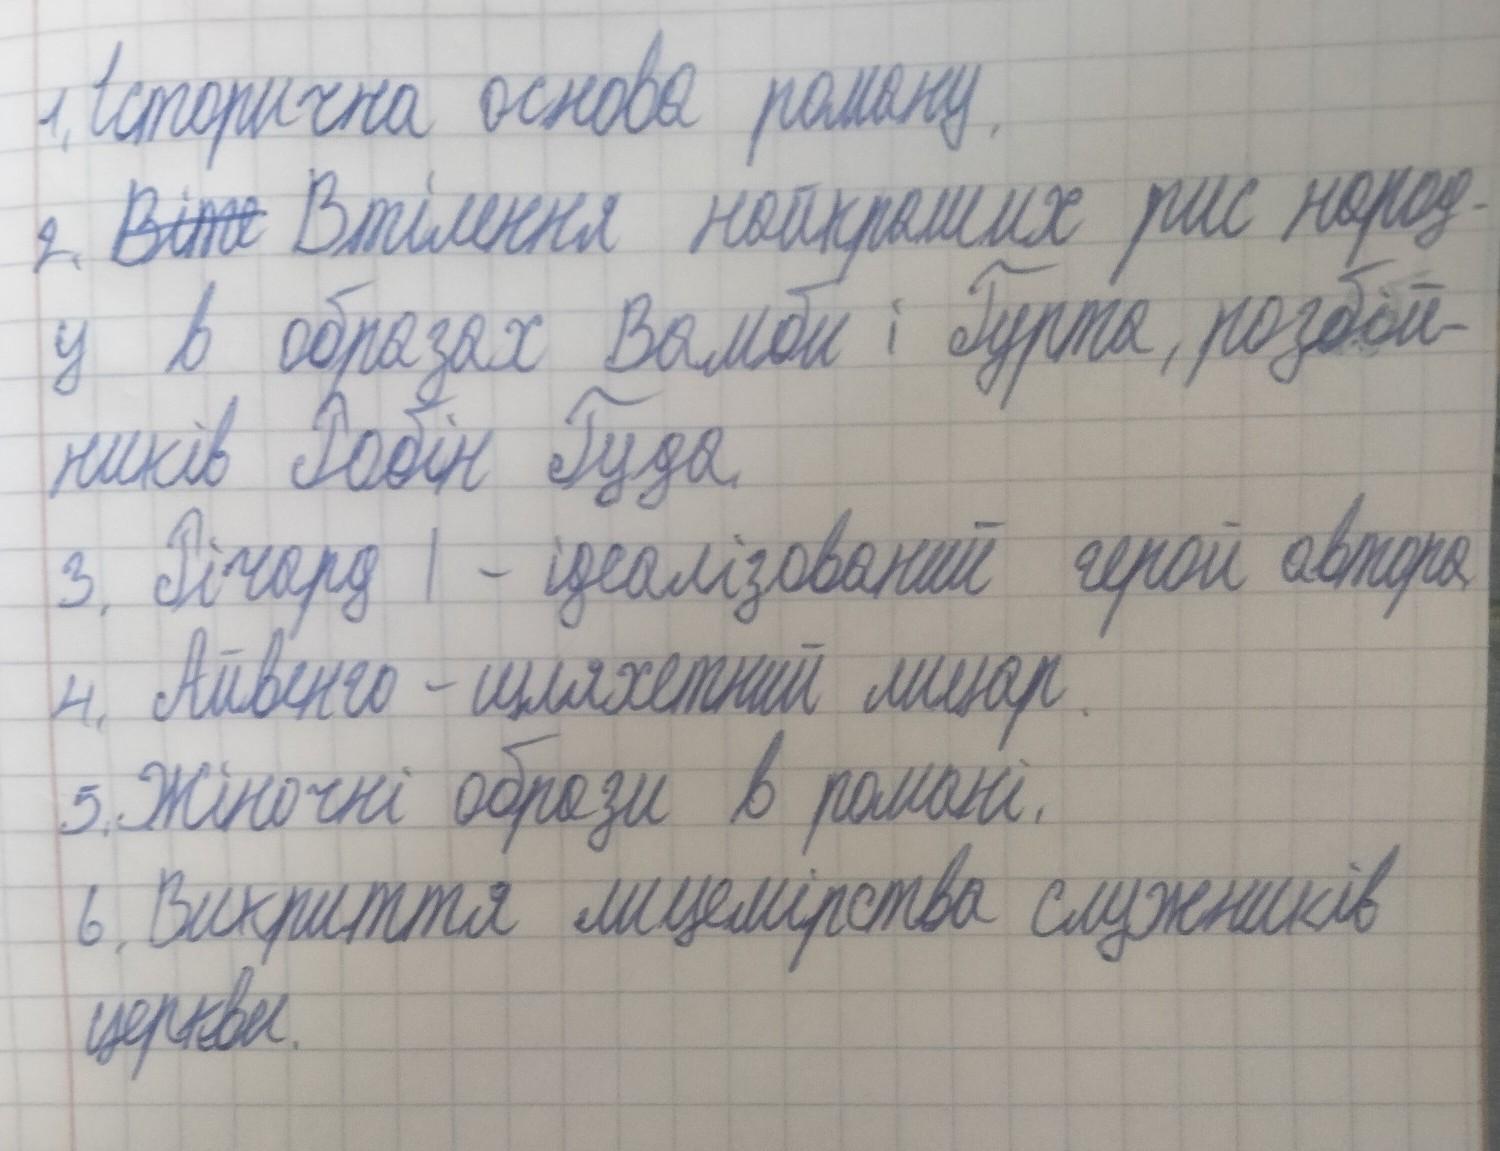 1. Історична основа роману.
2. Віта Втілення найкращих рис народ-
у в образах Вамби і Гурта, розбій-
ників Робін Гуда.
3. Річард I - ідеалізований герой автора
4. Айвенго - шляхетний лицар.
5. Жіночні образи в романі.
6. Викриття лицемірства служників
церкви.